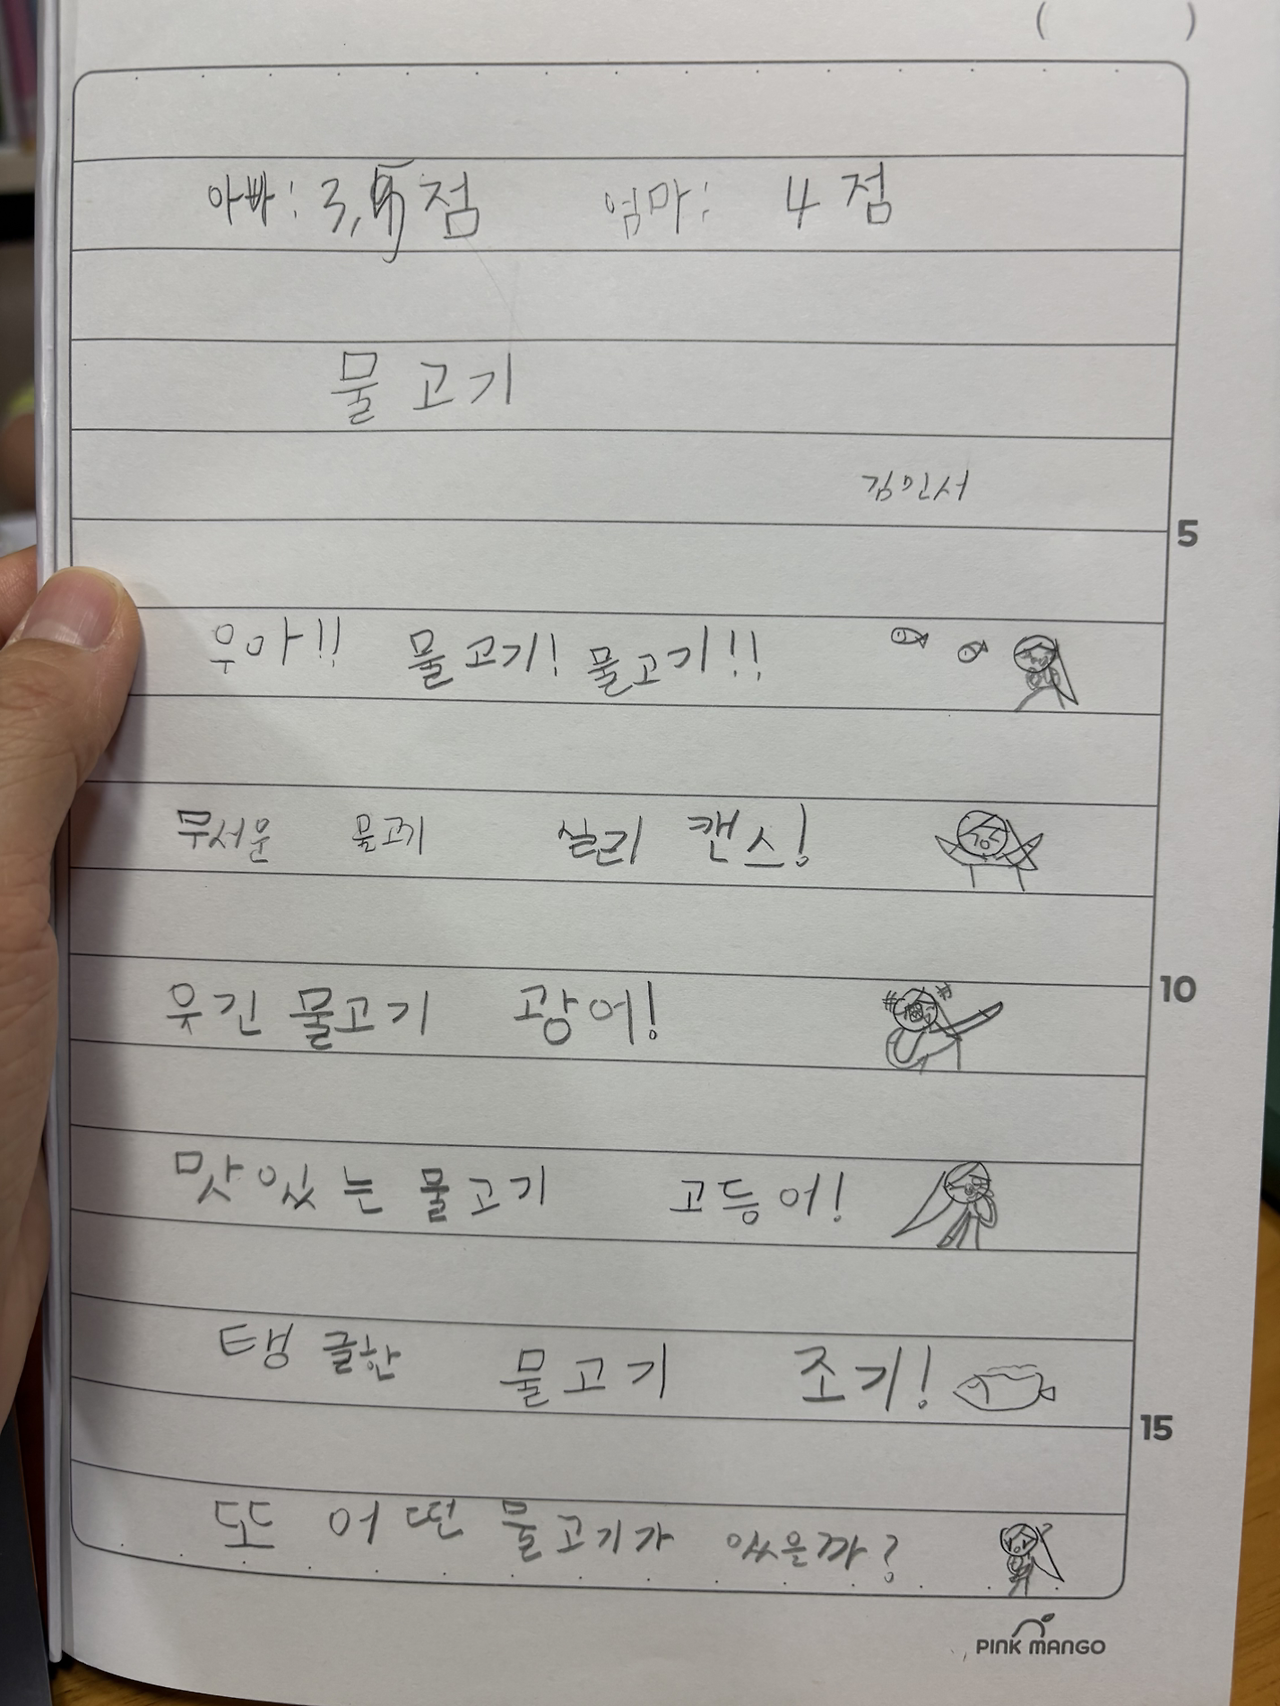 ( )
아빠: 3,5점 엄마: 4점
물고기
김민서
5
우아!! 물고기! 물고기!!
무서운 물고기 실러캔스!
10
웃긴 물고기 광어!
맛있는 물고기 고등어!
탱글한 물고기 조기!
15
또 어떤 물고기가 있을까?
PINK MANGO